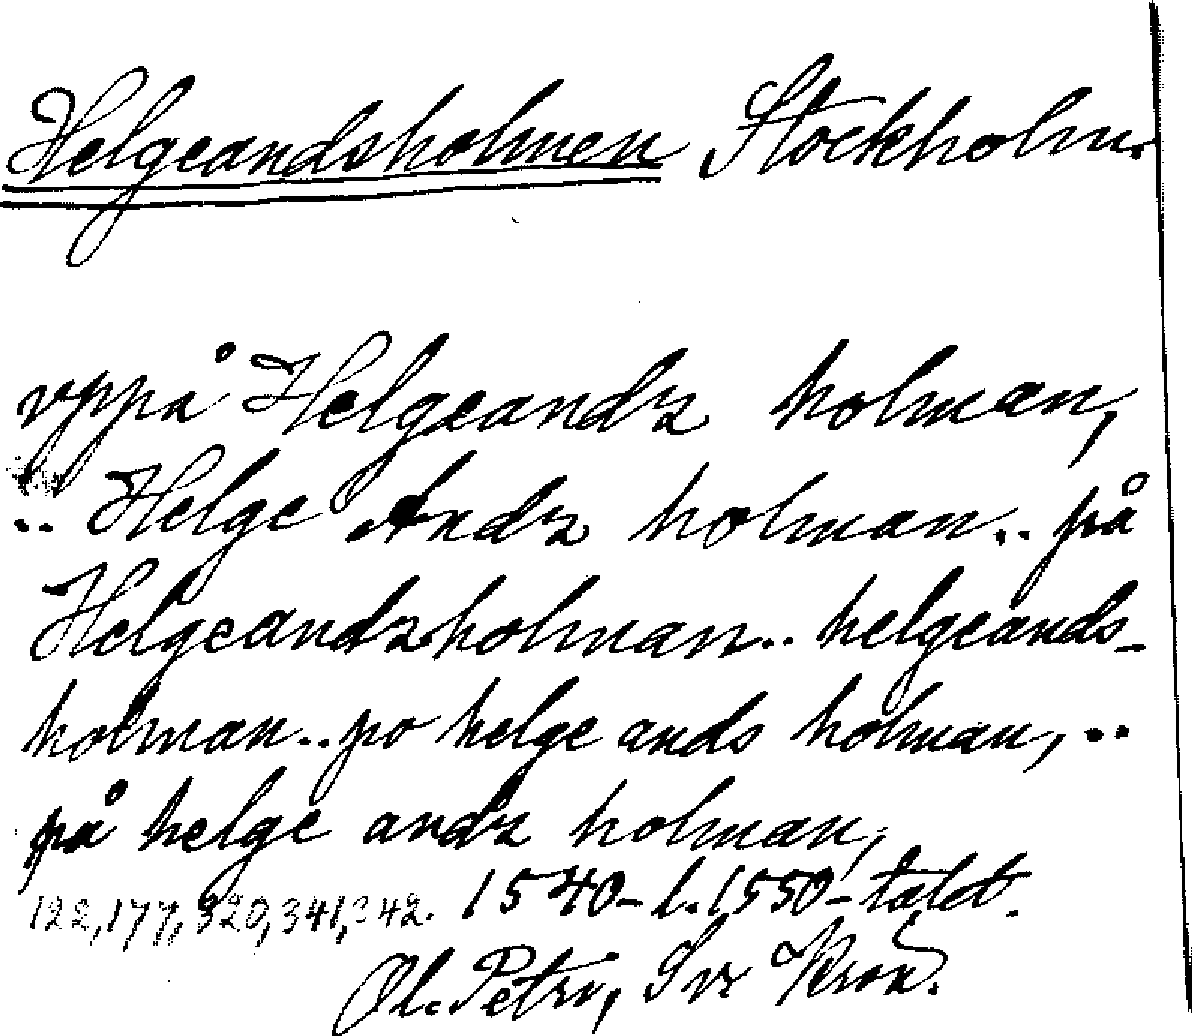 Helgeandsholmen Stockholm.
vppå Helgeandz holman,
.. Helge Andz holman.. på
Helgeandzholman.. helgeands-
holman.. po helge ands holman, ..
på helge andz holman,
122, 177, 320, 341, 342. 1540- l. 1550-talet.
Ol. Petri, Sv. Krön.